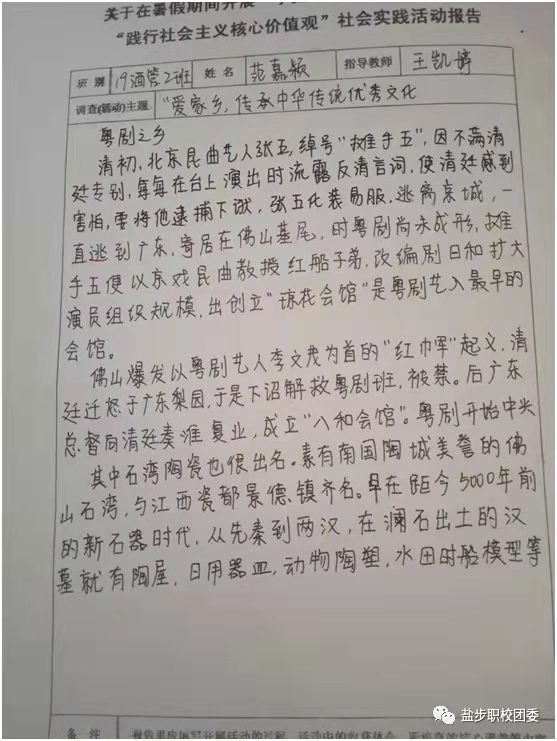 关于在暑假期间开展
“践行社会主义核心价值观”社会实践活动报告
班别 19酒管2班 姓名 范嘉颖 指导教师 王凯婷
调查(活动)主题 “爱家乡,传承中华传统优秀文化
粤剧之乡
清初,北京昆曲艺人张五,绰号“摊手五”,因不满清
廷专制,每每在台上演出时流露反清言词,使清廷感到
害怕,要将他逮捕下狱,张五化装易服,逃离京城,一
直逃到广东,寄居在佛山基尾,时粤剧尚未成形,摊
手五便以京戏昆曲教授红船子弟,改编剧目和扩大
演员组织规模,出创立“琼花会馆”是粤剧艺人最早的
会馆。
佛山爆发以粤剧艺人李文茂为首的“红巾军”起义,清
廷迁怒于广东梨园,于是下诏解散粤剧班,被禁。后广东
总督向清廷奏准复业,成立“八和会馆”。粤剧开始中兴
其中石湾陶瓷也很出名。素有南国陶城美誉的佛
山石湾,与江西瓷都景德镇齐名。早在距今5000年前
的新石器时代,从先秦到两汉,在澜石出土的汉
墓就有陶屋,日用器皿,动物陶塑,水田附船模型等
备注
盐步职校团委